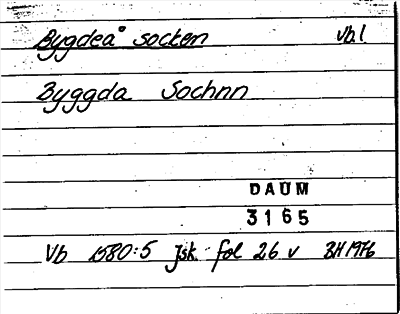 Bygdeå socken vb.l
Byggda Sochnn
DAUM
3165
Vb 1580:5 Jsk fol 26 v BH 1976